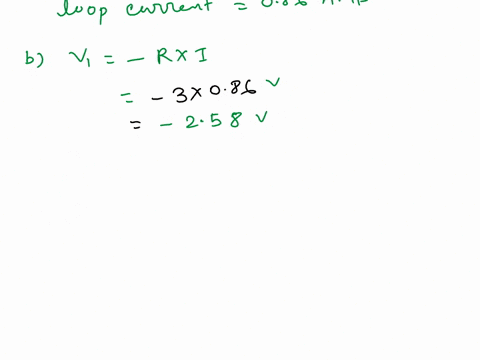 loop current = 0.86
b) V₁ = - R × I
= - 3 × 0.86 V
= - 2.58 V